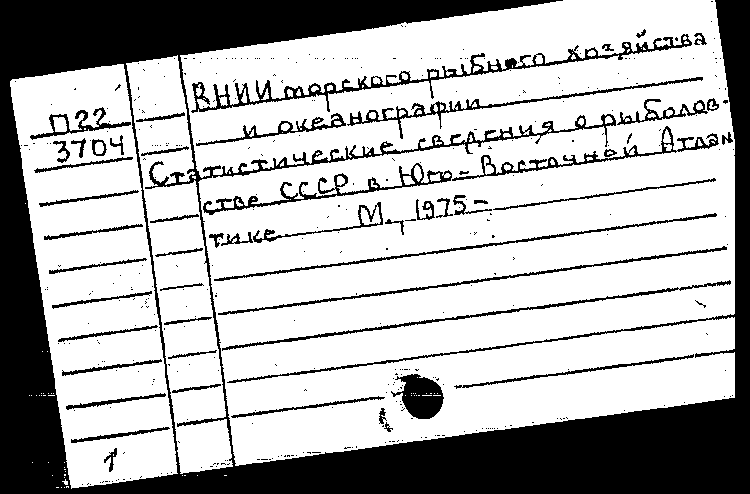 П22
3704
ВНИИ морского рыбного хозяйства
и океанографии
Статистические сведения о рыболов-
стве СССР в Юго-Восточной Атлан
тике М., 1975-